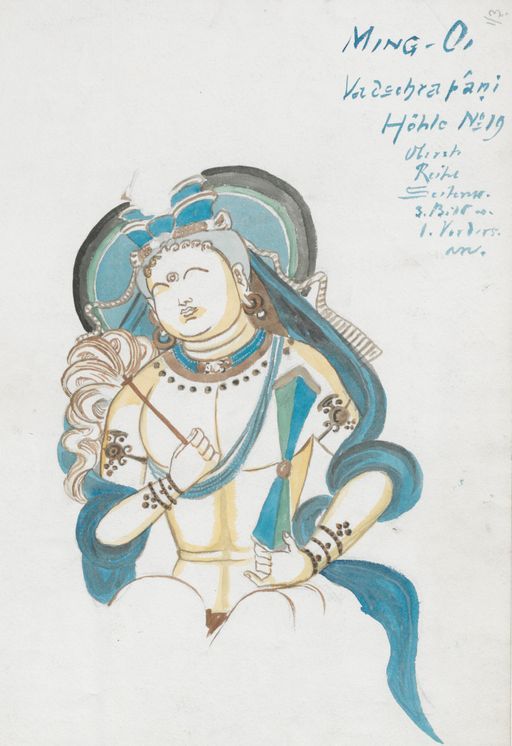 MING-OI
Vadschrapâṇi
Höhle No 19
Reihe
Seitenw.
3. Bild
1. Vorders.